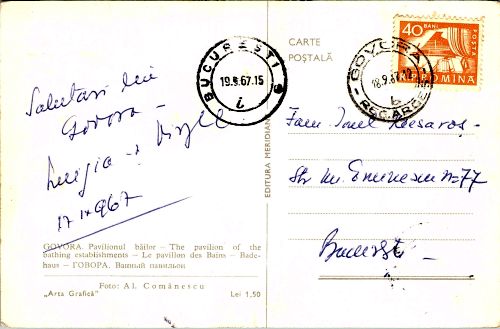 Salutări din
Govora -
17 IX 967
GOVORA. Pavilionul băilor — The pavilion of the
bathing establishments — Le pavillon des Bains — Bade-
haus — ГОВОРА. Ванный павильон
Foto: Al. Comănescu
„Arta Grafică" Lei 1,50
EDITURA MERIDIANE
BUCUREȘTI 6
19.9.67.15
CARTE
POȘTALĂ
GOVORA
18.9.67
REG. ARGEȘ
b
40 BANI
POSTA
R.P. ROMINA
Fam Ionel Mesaros -
Str M. Eminescu n=77
București